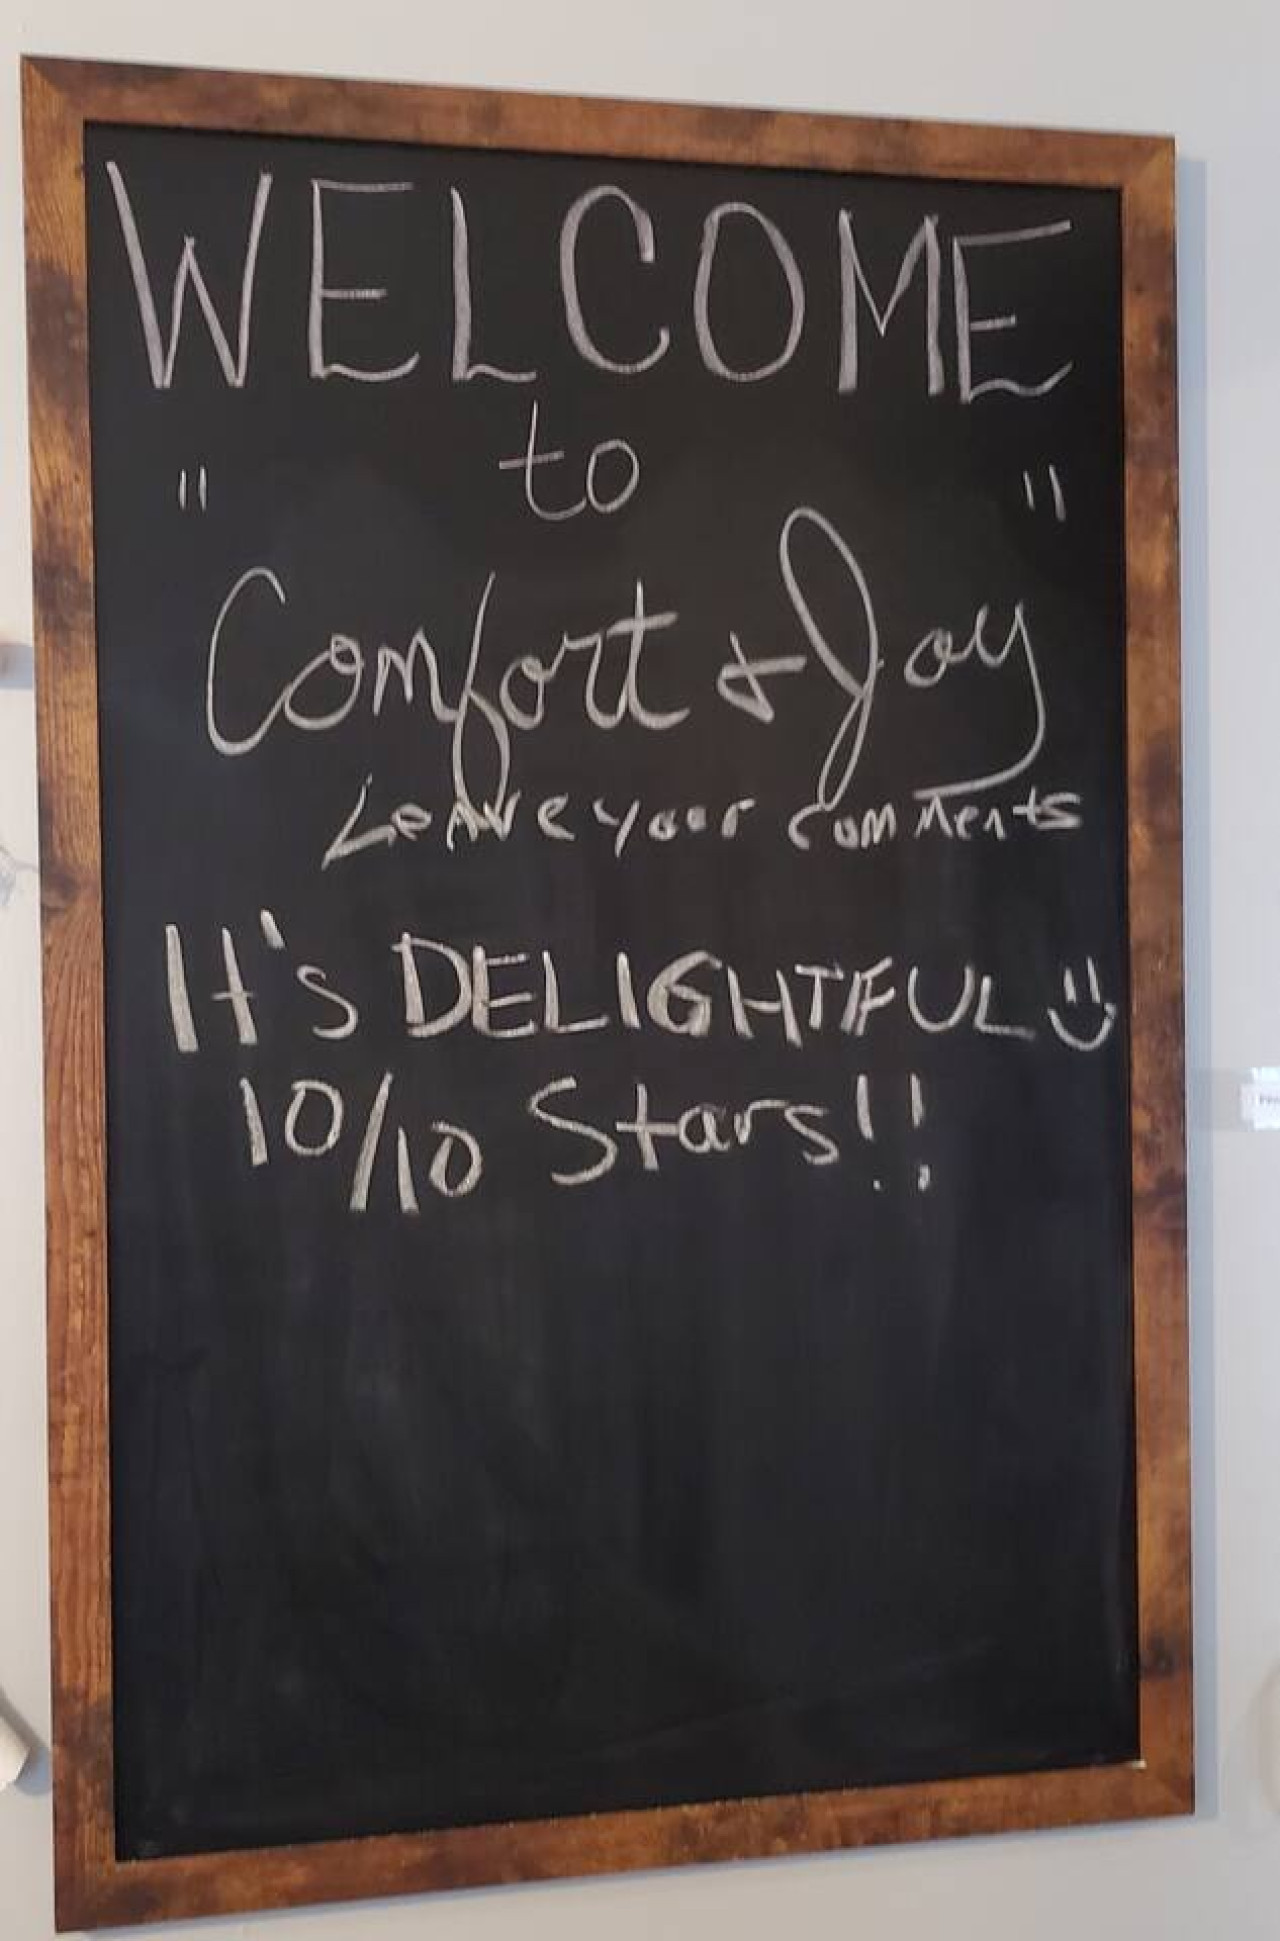 WELCOME
to
"Comfort & Joy"
Leave your comments
It's DELIGHTFUL :)
10/10 Stars!!